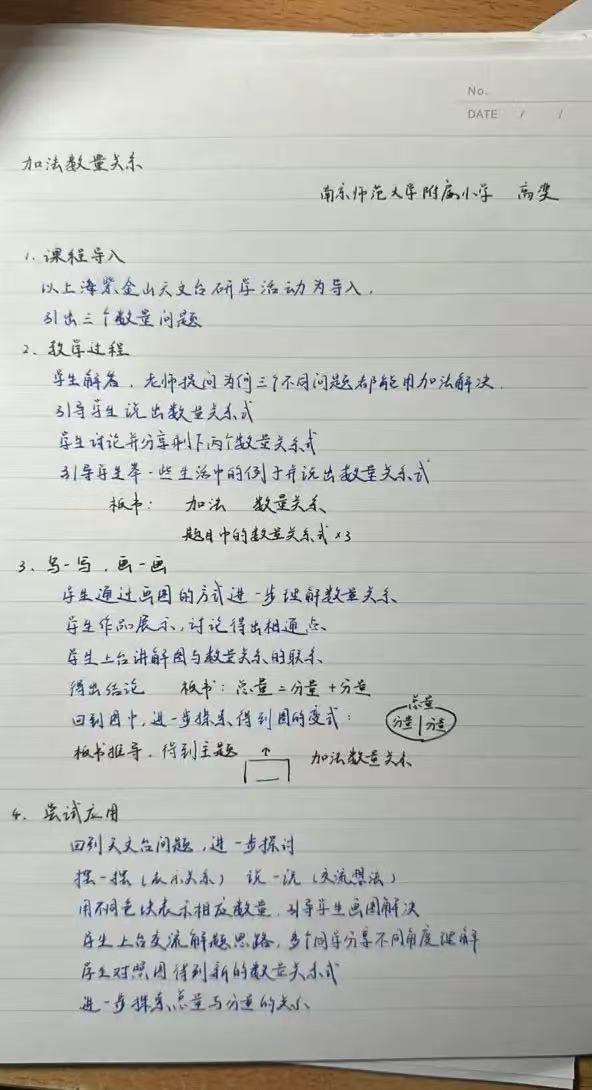 No.
DATE / /
加法数量关系
南京师范大学附属小学 高雯
1. 课程导入
以上海紫金山天文台研学活动为导入,
引出三个数量问题
2、教学过程
学生解答,老师提问为何三个不同问题都能用加法解决.
引导学生说出数量关系式
学生讨论并分享剩下两个数量关系式
引导学生举一些生活中的例子并说出数量关系式
板书: 加法 数量关系
题目中的数量关系式×3
3、写一写,画一画
学生通过画图的方式进一步理解数量关系
学生作品展示,讨论得出相通点
学生上台讲解图与数量关系的联系
得出结论 板书:总量=分量+分量
回到图中,进一步探索得到图的变式:
总量
分量 分量
板书推导,得到主题 ↑ 加法数量关系
4、尝试应用
回到天文台问题,进一步探讨
摆一摆(表示关系) 说一说(交流想法)
用不同色块表示相应数量,引导学生画图解决
学生上台交流解题思路,多个同学分享不同角度理解
学生对照图得到新的数量关系式
进一步探索总量与分量的关系